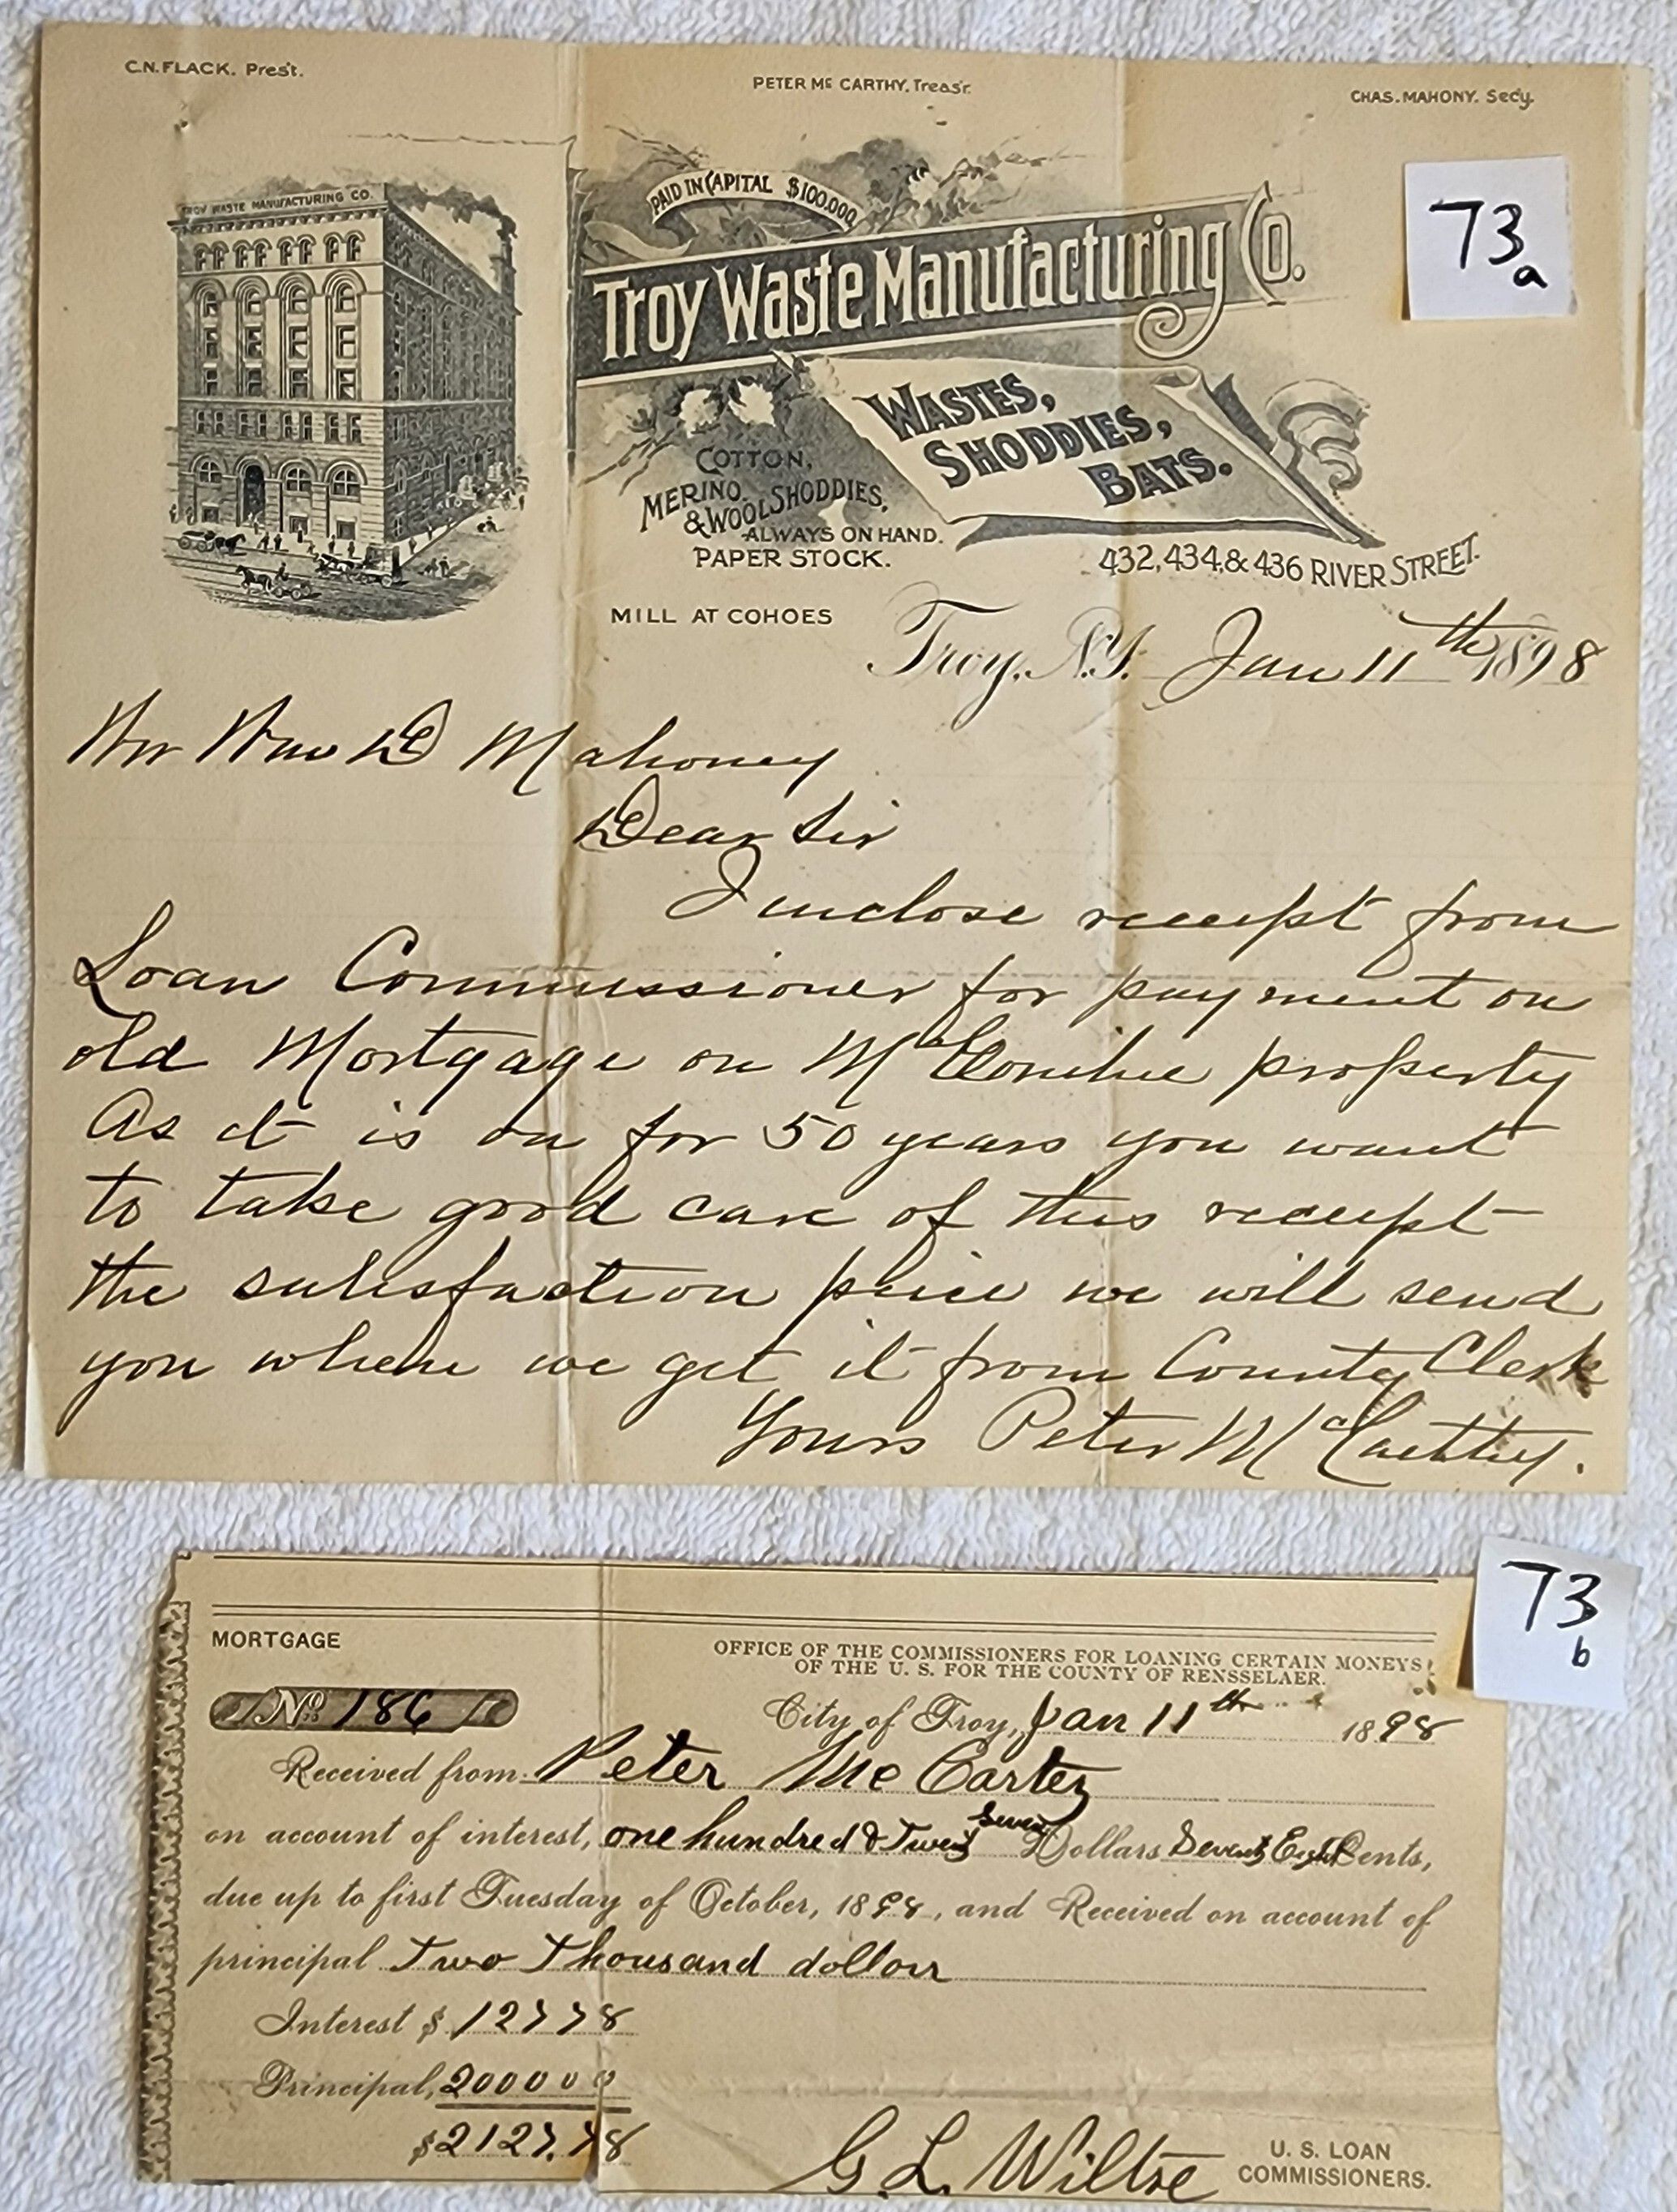 C.N. FLACK. Pres't.
PETER Mc CARTHY, Treas'r.
CHAS. MAHONY. Sec'y.
73a
TROY WASTE MANUFACTURING CO.
PAID IN CAPITAL $100,000
Troy Waste Manufacturing Co.
WASTES,
SHODDIES,
BATS.
COTTON,
MERINO,
& WOOL SHODDIES,
ALWAYS ON HAND.
PAPER STOCK.
432, 434, & 436 RIVER STREET.
MILL AT COHOES
Troy, N.Y. Jan 11th 1898
Mr Wm D Mahoney
Dear Sir
I inclose receipt from
Loan Commissioner for payment on
old Mortgage on property
As it is on for 50 years you want
to take good care of this receipt
the satisfaction we will send
you when we get it from County Clerk
Yours Peter McCarthy.
73b
MORTGAGE
OFFICE OF THE COMMISSIONERS FOR LOANING CERTAIN MONEYS
OF THE U. S. FOR THE COUNTY OF RENSSELAER.
No 186
City of Troy, Jan 11th 1898
Received from Peter Mc
on account of interest, one hundred & Twenty Seven Dollars Seventy Eight Cents,
due up to first Tuesday of October, 1898, and Received on account of
principal Two Thousand dollars
Interest $ 127 78
Principal, 2000 00
$ 2127.78
G. L. Wiltse
U. S. LOAN
COMMISSIONERS.